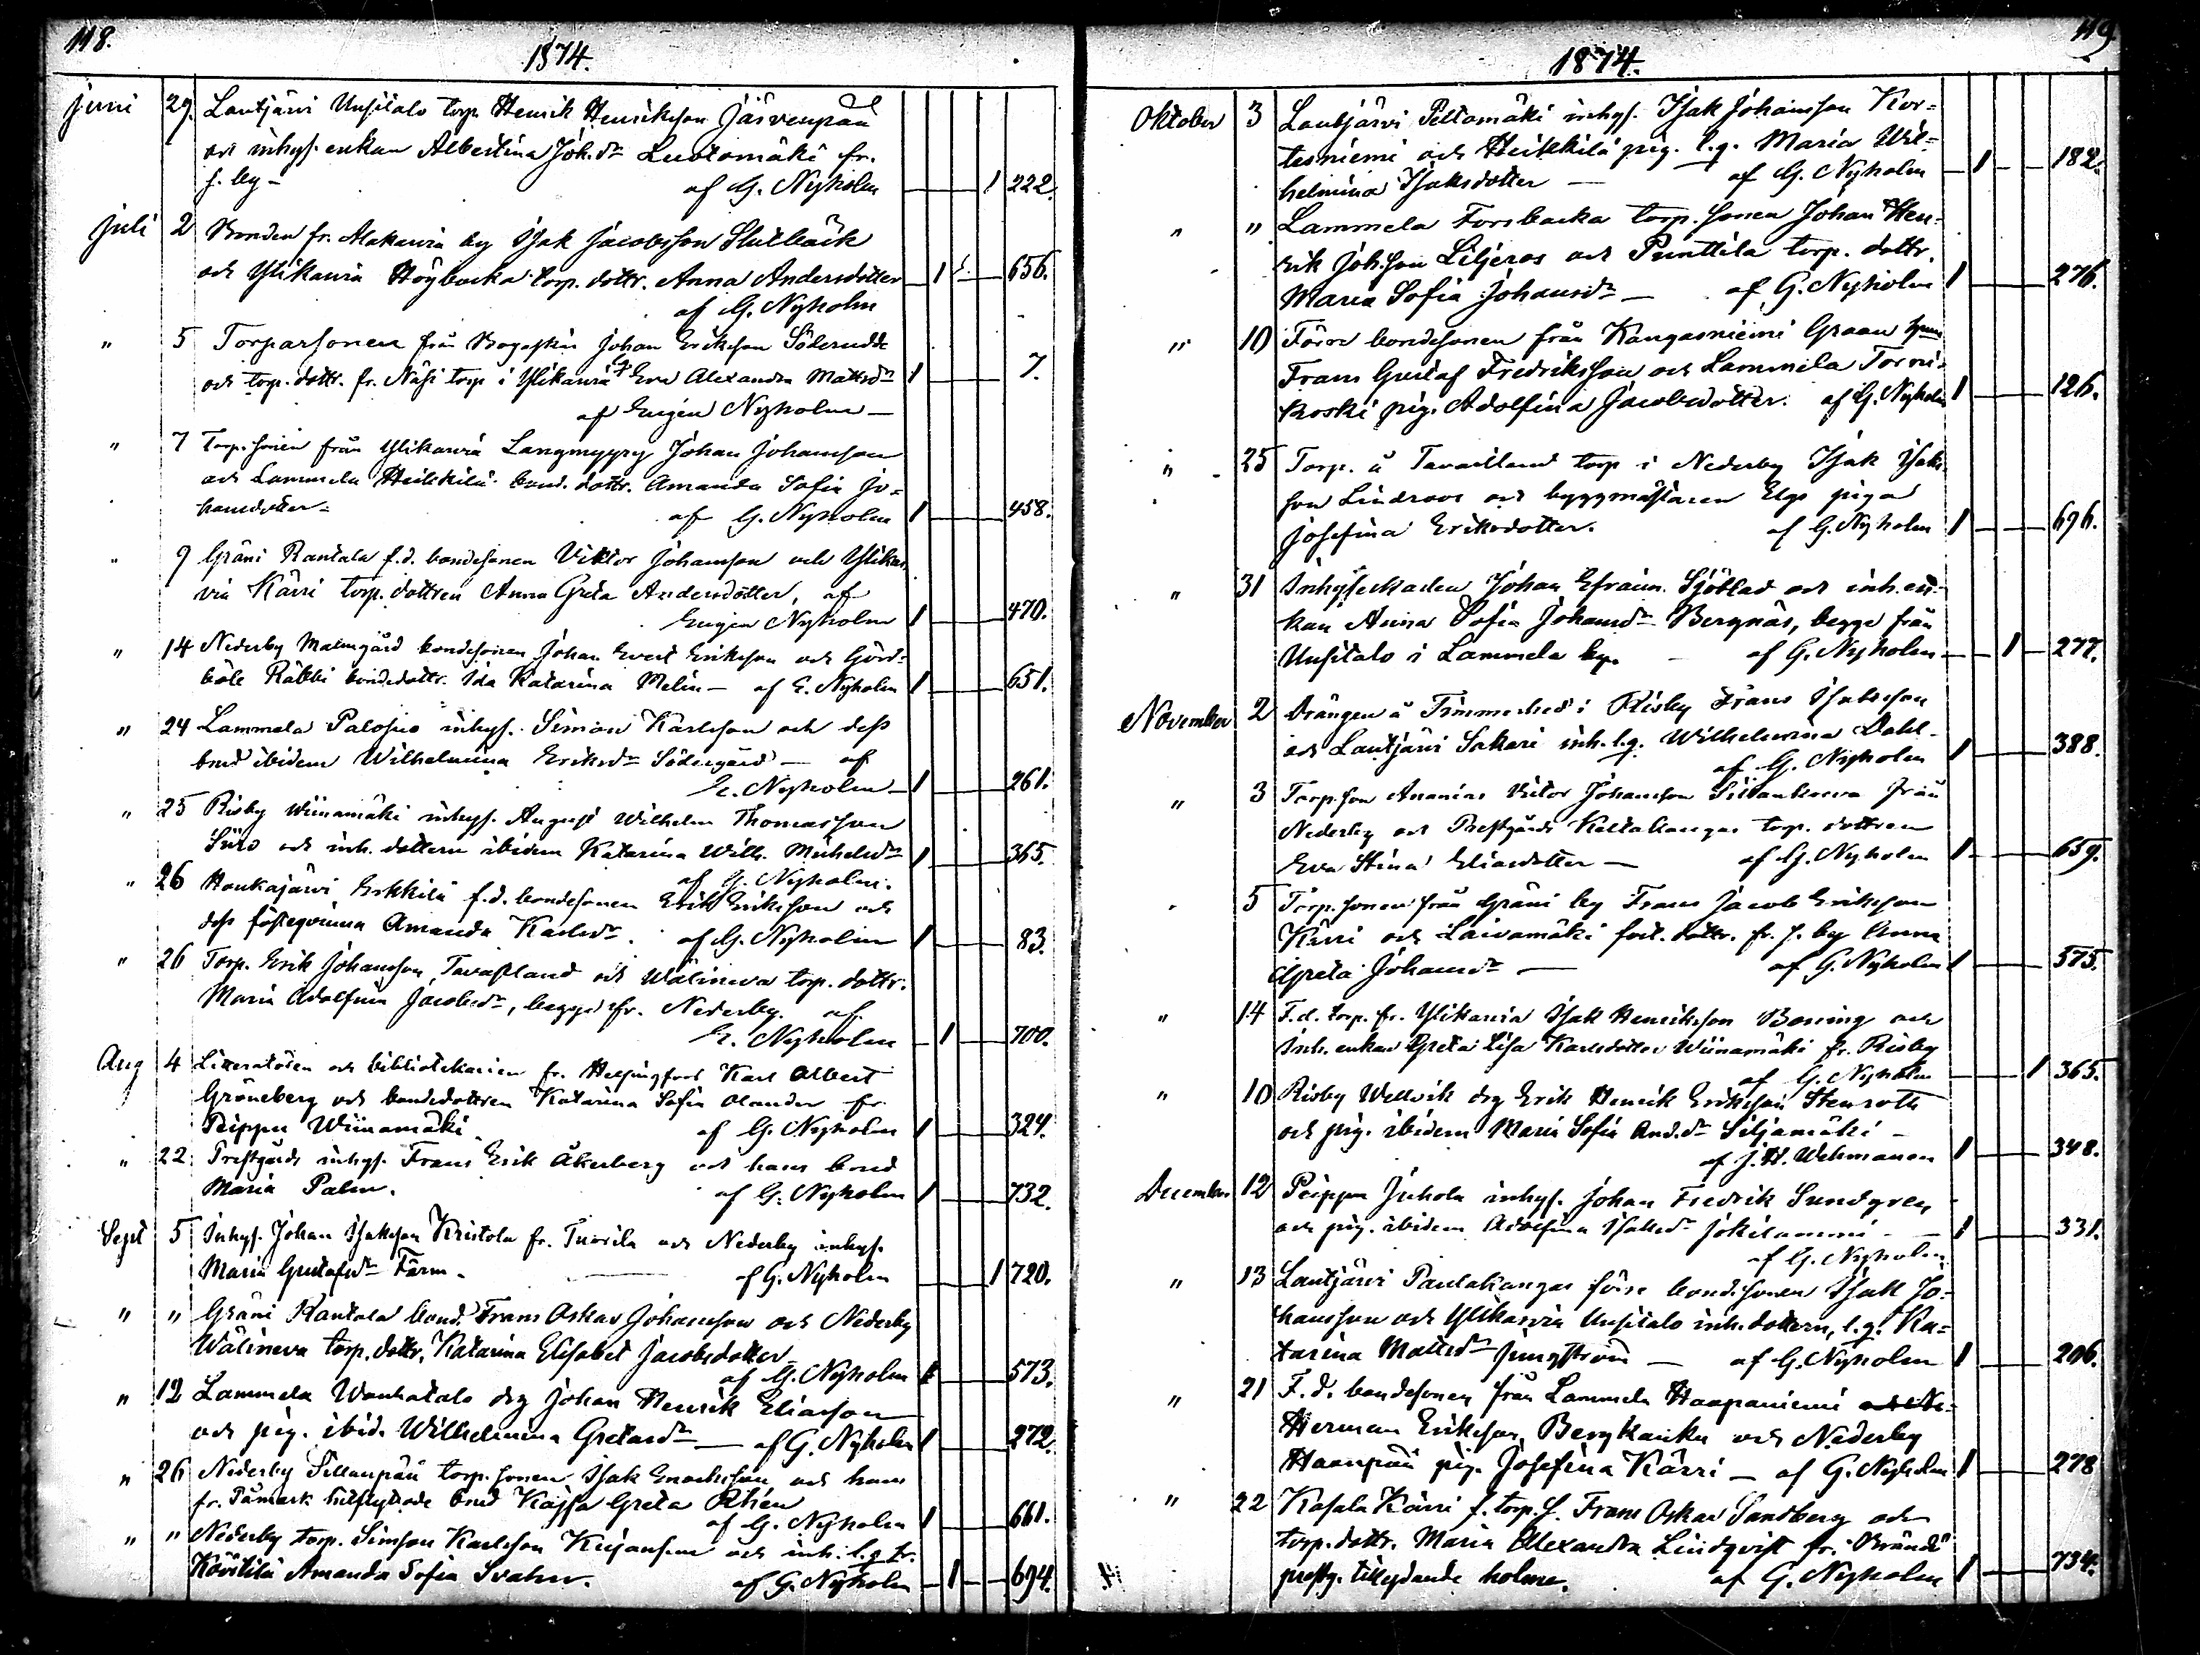 118.
1874.
Juni 29. Lautjärvi Uusitalo torp. Henrik Henriksson Järvenpää
och inhys. enkan Albertina Joh.dr Luotomäki fr.
s. by – af G. Nyholm 1 222.
Juli 2 Bonden fr. Alakauvia by Isak Jacobsson Slutbäck
och Ylikauvia Högbacka torp. dottr. Anna Andersdotter 1 656.
af G. Nyholm
" 5 Torparsonen från Johan Eriksson Söderudde
och torp. dottr. fr. Näsi torp i Ylikauvia Eva Alexandra Mattsdr 1 7.
af Eugén Nyholm –
" 7 Torp. sonen från Ylikauvia Langmyyry Johan Johansson
och Lammela Heikkilä bond. dottr. Amanda Sofia Jo=
hansdotter – af G. Nyholm 1 458.
" 9 Gräni Rantala f.d. bondesonen Viktor Johansson och Ylikau
via Kärri torp. dottren Anna Greta Andersdotter, af
Eugén Nyholm 1 470.
" 14 Nederby Malmgård bondesonen Johan Evert Eriksson och Görd=
böle Räbbi bondedottr. Ida Katarina Melin – af E. Nyholm 1 651.
" 24 Lammela Palosuo inhys. Simon Karlsson och dess
brud ibidem Wilhelmina Eriksdr Södergård – af
E. Nyholm 1 261.
" 25 Risby Wiinamäki inhys. August Wilhelm Thomasson
Siiro och inh. dottern ibidem Katarina Wilh. Michelsdr 1 365.
af G. Nyholm.
" 26 Honkajärvi Erkkilä f.d. bondesonen Erik Eriksson och
dess fästeqvinna Amanda Karlsdr. af G. Nyholm 1 83.
" 26 Torp. Erik Johansson Tavastland och Wälineva torp. dottr.
Maria Adolfina Jacobsdr, begge fr. Nederby. af
E. Nyholm 1 700.
Aug 4 Litteratören och bibliotekarien fr. Helsingfors Karl Albert
Gröneberg och bondedottren Katarina Sofia Olander fr.
Peippu Wiinamäki af G. Nyholm 1 324.
" 22 Prestgårds inhys. Frans Erik Åkerberg och hans brud
Maria Palm. af G. Nyholm 1 732.
Sept 5 Inhys. Johan Isaksson Kristola fr. Tuorila och Nederby inhys.
Maria Gustafsdr Färm – af G. Nyholm 1 720.
" " Gräni Rantala bond. Frans Oskar Johansson och Nederby
Wälineva torp. dottr. Katarina Elisabet Jacobsdotter
af G. Nyholm 1 573.
" 12 Lammela Wanhatalo drg Johan Henrik Eliasson
och pig. ibid. Wilhelmina Gretasdr – af G. Nyholm 1 272.
" 26 Nederby Sillanpää torp. sonen Isak Enochsson och hans
fr. Påmark brud Kajsa Greta Rhén
af G. Nyholm 1 661.
" " Nederby torp. Simson Karlsson Kujansuu och inh. l.q. fr.
Köörtilä Amanda Sofia Svahn. af G. Nyholm 1 694.
119
1874.
Oktober 3 Lautjärvi Peltomäki inhys. Isak Johansson Kor=
tesniemi och Heikkilä pig. l.q. Maria Wil=
helmina Isaksdotter – af G. Nyholm 1 182.
" " Lammela Forsbacka torp. sonen Johan Hen=
rik Joh.son Liljeros och Punttila torp. dottr.
Maria Sofia Johansdr – af G. Nyholm 1 276.
" 10 Förre bondesonen från Kangasniemi Graan
Frans Gustaf Fredriksson och Lammela Torni=
koski pig. Adolfina Jacobsdotter. af G. Nyholm 1 126.
" 25 Torp. å Tavastland torp i Nederby Isak Isaks
son Lindroos och byggmästaren Elgs piga
Josefina Eriksdotter. af G. Nyholm 1 696.
" 31 Inhyseskarlen Johan Efraim Sjöblad och inh. en=
kan Anna Sofia Johansdr Bergnäs, begge från
Uusitalo i Lammela by. – af G. Nyholm 1 277.
November 2 Drängen å Timmerhed i Risby Frans Isaksson
och Lautjärvi Sakari inh. l.q. Wilhelmina Dahl –
af G. Nyholm 1 388.
" 3 Torp. son Ananias Victor Johansson från
Nederby och Prestgårds Kaltakangas torp. dottren
Eva Stina Eliasdotter – af G. Nyholm 1 659.
5 Torp. sonen från Gräni by Frans Jacob Eriksson
Kärri och Laivamäki dottr. fr. s. by Anna
Greta Johansdr – af G. Nyholm 1 575.
" 14 F.d. torp. fr. Ylikauvia Isak Henriksson Boning och
Inh. enkan Greta Lisa Karlsdotter Wiinamäki fr. Risby
af G. Nyholm 1 365.
" 10 Risby Wellvik drg Erik Henrik Eriksson Stenroth
och pig. ibidem Maria Sofia And.dr Siljamäki –
af J. H. Wehmanen 1 348.
December 12 Peippu Juhola inhys. Johan Fredrik Sundgren
och pig. ibidem Adolfina Isaksdr Jokilammi – 1 331.
af G. Nyholm.
" 13 Lautjärvi Pantakangas förre bondesonen Isak Jo=
hansson och Ylikauvia Uusitalo inh. dottern, l.q. Ka=
tarina Mattsdr Ljungström – af G. Nyholm 1 206.
" 21 F.d. bondesonen från Lammela Haapaniemi
Herman Eriksson Bergkanka och Nederby
Haanpää pig. Josefina Kärri – af G. Nyholm 1 278
" 22 Kasala Kärri f. torp. s. Frans Oskar Sandberg och
torp. dottr. Maria Alexandra Lindqvist fr. Brändö
prestg. tillydande holme. af G. Nyholm 1 734.